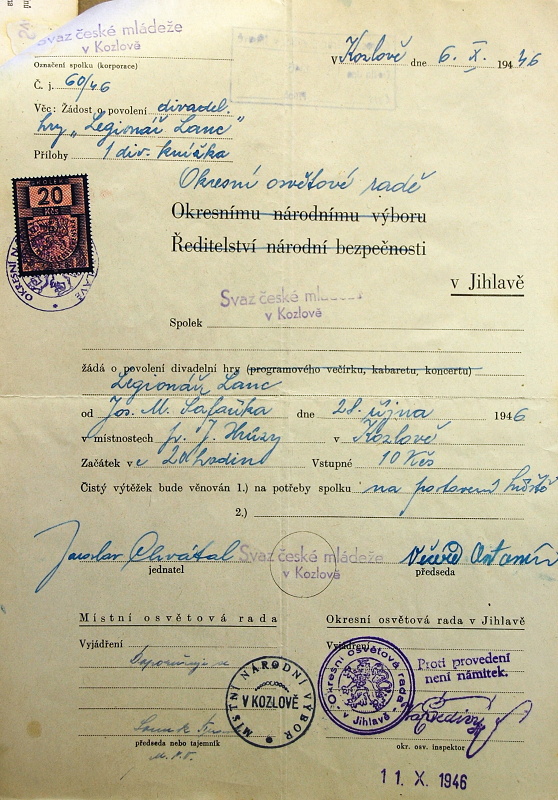 Svaz české mládeže
v Kozlově
Označení spolku (korporace)
V Kozlově dne 6. X. 1946
Č. j. 60/46
Věc: Žádost o povolení divadel.
hry „Legionář Lanc"
Přílohy 1 div. knížka
Okresní osvětové radě
Okresnímu národnímu výboru
Ředitelství národní bezpečnosti
v Jihlavě
20
Kčs
Svaz české mládeže
v Kozlově
Spolek
žádá o povolení divadelní hry (programového večírku, kabaretu, koncertu)
Legionář Lanc
od Jos. M. dne 28. října 1946
v místnostech p. J. Hrůzy v Kozlově
Začátek ve 20 hodin Vstupné 10 Kčs
Čistý výtěžek bude věnován 1.) na potřeby spolku na postavení hřiště
2.)
Jaroslav Chvátal Svaz české mládeže
v Kozlově
jednatel předseda
Místní osvětová rada Okresní osvětová rada v Jihlavě
Vyjádření Vyjádření
Doporučuje se
MÍSTNÍ NÁRODNÍ VÝBOR
V KOZLOVĚ
Okresní osvětová rada
v Jihlavě
Proti provedení
není námitek.
předseda nebo tajemník okr. osv. inspektor
11. X. 1946